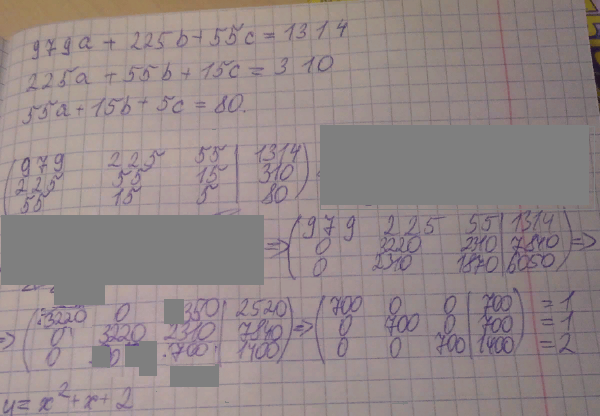 979a + 225b + 55c = 1314
225a + 55b + 15c = 310
55a + 15b + 5c = 80.
979 225 55 | 1314
225 55 15 | 310
55 15 5 | 80
=> 979 225 55 | 1314 =>
0 3220 2310 | 7840
0 2310 1870 | 6050
=> 3220 0 350 | 2520 => 700 0 0 | 700 = 1
0 3220 2310 | 7840 0 700 0 | 700 = 1
0 0 700 | 1400 0 0 700 | 1400 = 2
y = x² + x + 2